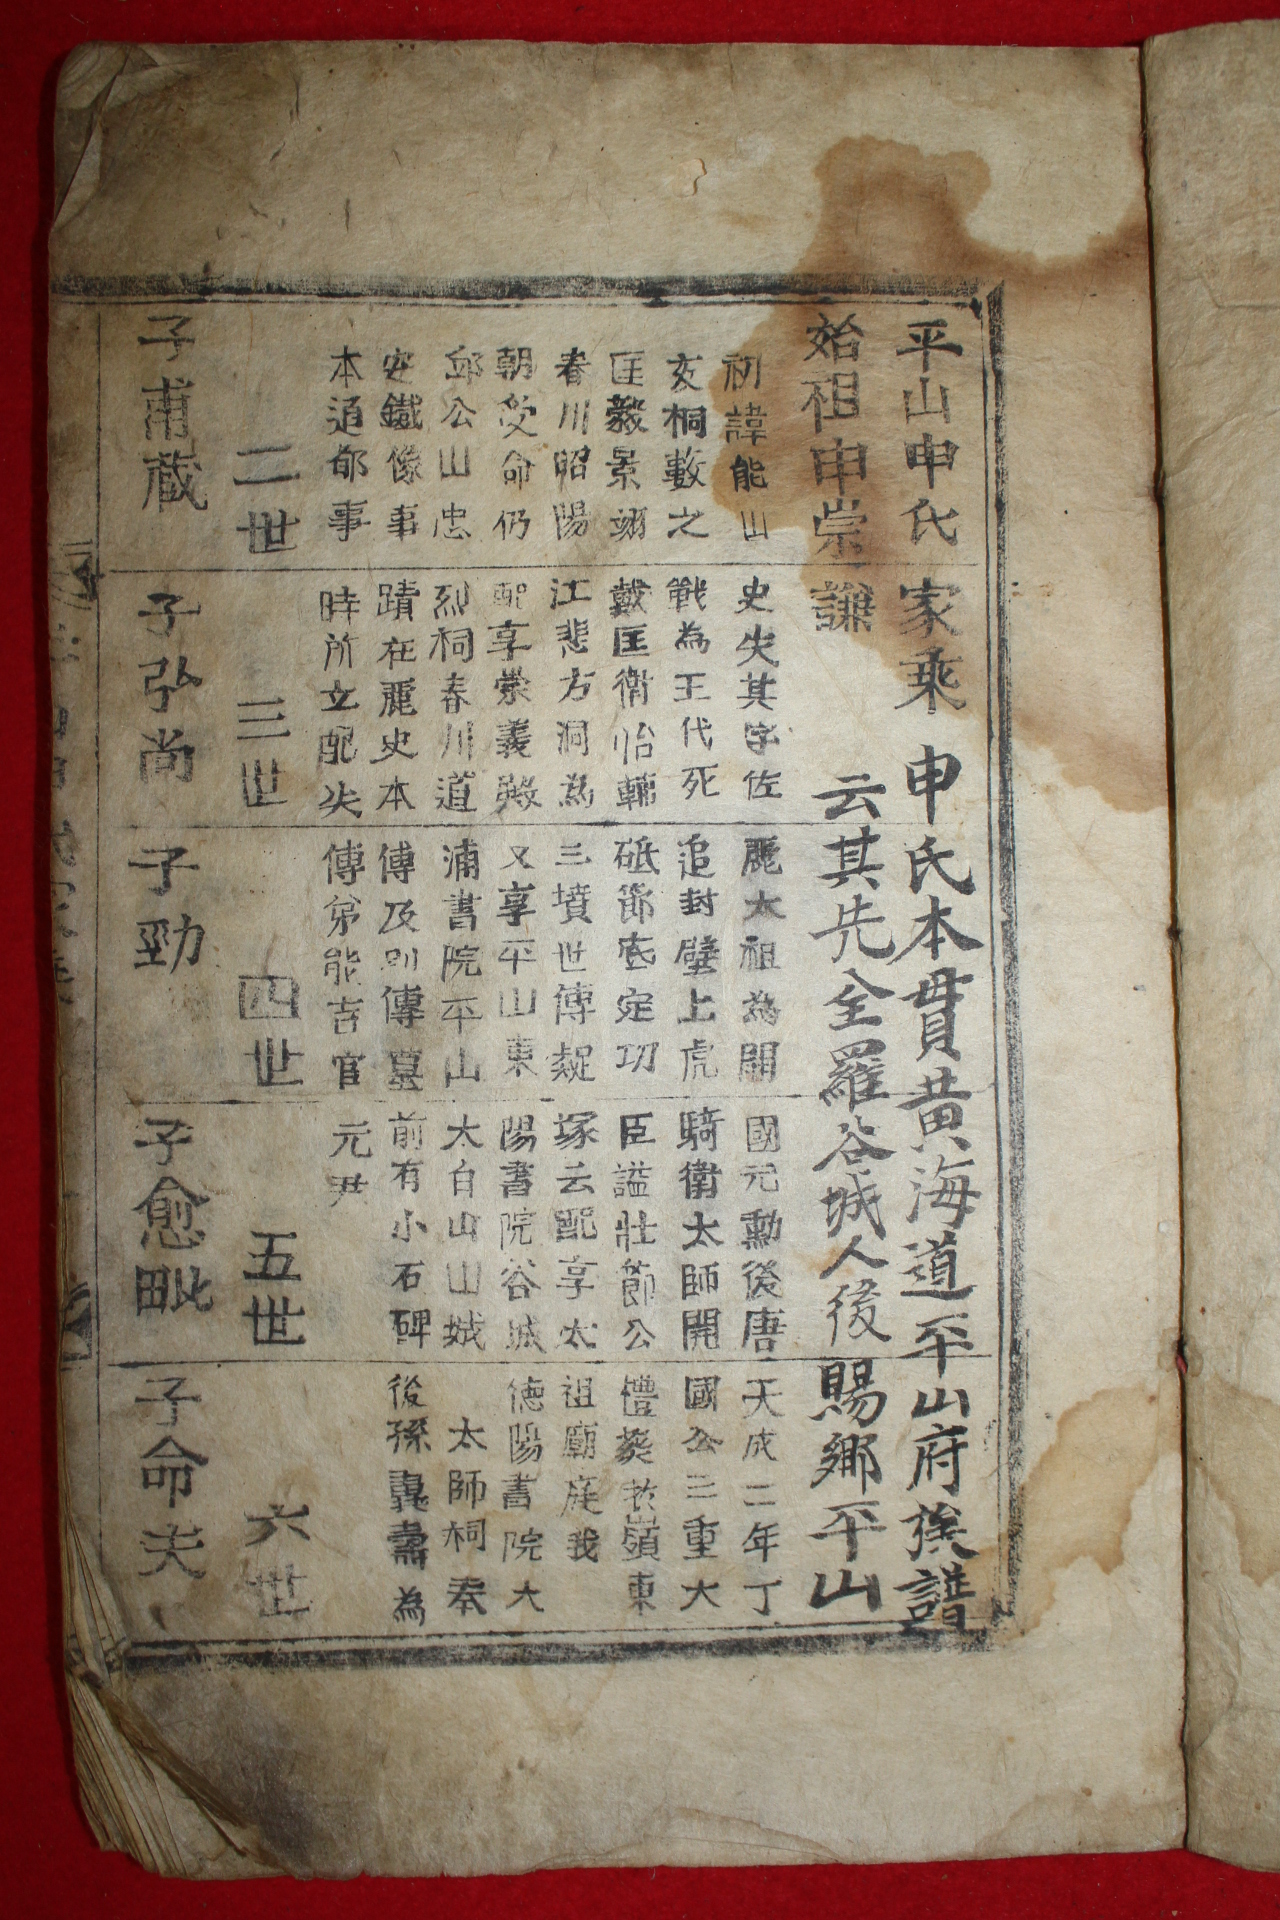 平山申氏家乘 申氏本貫黃海道平山府侯譜
始祖申崇謙 云其先全羅谷城人後賜鄉平山
初諱能山史失其字佐麗太祖為開國元勳後唐天成二年丁
亥桐藪之戰為王代死追封壁上虎騎衛太師開國公三重大
匡毅景翊戴匡衛怡輔砥節底定功臣謚壯節公禮葬於嶺東
春川昭陽江悲方洞為三墳世傳疑塚云配享太祖廟庭我
朝受命仍配享崇義殿又享平山東陽書院谷城德陽書院大
邱公山忠烈祠春川道浦書院平山太白山山城太師祠奉
安鐵像事蹟在麗史本傳及別傳墓前有小石碑後孫 為
本道都事時所立配失傳弟能吉官元尹
二世 三世 四世 五世 六世
子甫藏 子弘尚 子勁 子愈毗 子命夫